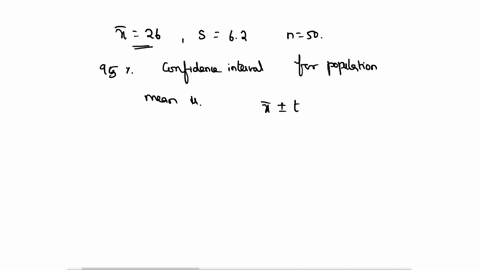 x̄ = 26 , S = 6.2 n=50.
95 %. Confidence interval for population
mean μ. x̄ ± t